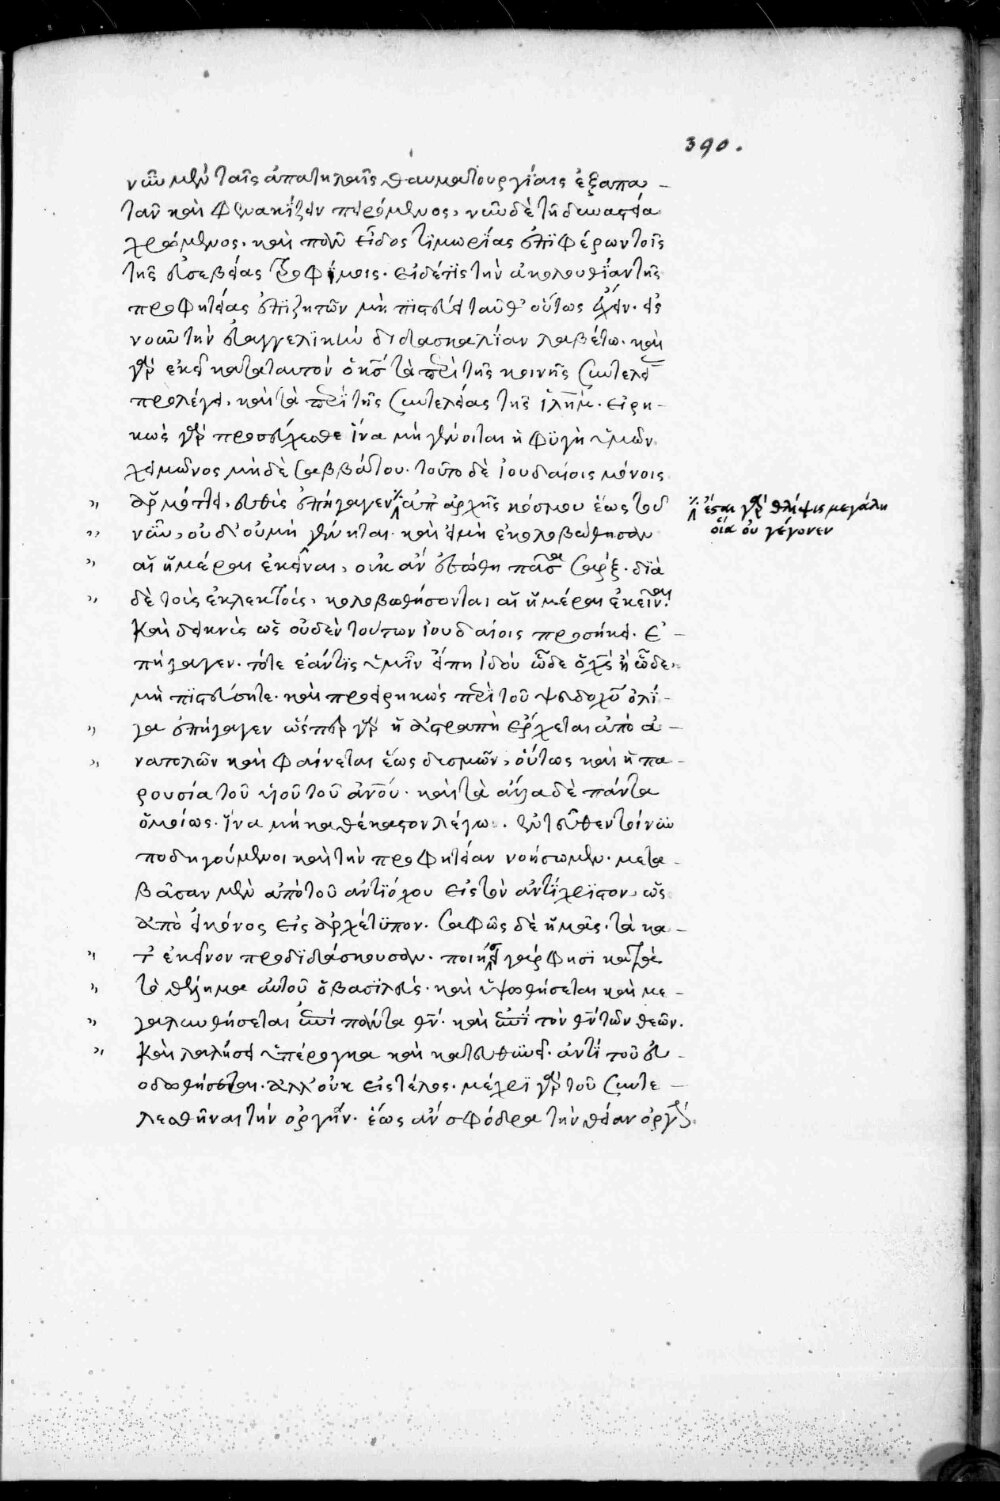 390.
νῦν μὲν ταῖς ἀπατηλαῖς θαυματουργίαις ἐξαπα-
τᾶν καὶ φενακίζειν πειρώμενος, νῦν δὲ τῇ δυναστεία
χρώμενος. καὶ πᾶν εἶδος τιμωρίας ἐπιφέρων τοῖς
τῆς εὐσεβείας τροφίμοις. εἰ δέ τις τὴν ἀκολουθίαν τῆς
προφητείας ἐπιζητῶν μὴ πιστεύει ταῦθ' οὕτως ἔχειν. εἰς
νοῦν τὴν εὐαγγελικὴν διδασκαλίαν λαβέτω. καὶ
γὰρ ἐκεῖ κατὰ ταυτὸν ὁ κς τὰ περὶ τῆς κοινῆς συντελείας
προλέγει. καὶ τὰ περὶ τῆς συντελείας τῆς ἱλήμ. εἰρη-
κὼς γὰρ προσεύχεσθε ἵνα μὴ γένηται ἡ φυγὴ ὑμῶν
χειμῶνος μὴ δὲ σαββάτου. τοῦτο δὲ ἰουδαίοις μόνοις
ἁρμόττει, εὐθὺς ἐπήγαγεν ἀπ' ἀρχῆς κόσμου ἕως τοῦ
ἔσται γὰρ θλίψις μεγάλη
οἵα οὐ γέγονεν
νῦν, οὐδ' οὐ μὴ γένηται. καὶ εἰ μὴ ἐκολοβώθησαν
αἱ ἡμέραι ἐκεῖναι, οὐκ ἂν ἐσώθη πᾶσα σάρξ. διὰ
δὲ τοὺς ἐκλεκτοὺς, κολοβωθήσονται αἱ ἡμέραι ἐκεῖναι.
καὶ δεικνὺς ὡς οὐδὲν τούτων ἰουδαίοις προσήκει. ἐ-
πήγαγεν. τότε ἐάν τις ὑμῖν εἴπη ἰδοὺ ὧδε ὁ χς ἢ ὧδε,
μὴ πιστεύσητε. καὶ προειρηκὼς περὶ τοῦ ψευδοχῦ ὀλί-
γα ἐπήγαγεν ὥσπερ γὰρ ἡ ἀστραπὴ ἔρχεται ἀπὸ ἀ-
νατολῶν καὶ φαίνεται ἕως δυσμῶν, οὕτως καὶ ἡ πα-
ρουσία τοῦ υἱοῦ τοῦ ἀνου. καὶ τὰ ἄλλα δὲ πάντα
ὁμοίως. ἵνα μὴ καθέκαστον λέγω. ἐντεῦθεν τοίνυν
ποδηγούμενοι καὶ τὴν προφητείαν νοήσωμεν. μετα-
βᾶσαν μὲν ἀπὸ τοῦ ἀντιόχου εἰς τὸν ἀντίχριστον, ὡς
ἀπὸ εἰκόνος εἰς ἀρχέτυπον. σαφῶς δὲ ἡμᾶς. τὰ κα-
τ' ἐκεῖνον προδιδάσκουσαν. ποιήσει γάρ φησι κατὰ
τὸ θέλημα αὐτοῦ ὁ βασιλεὺς. καὶ ὑψωθήσεται καὶ με-
γαλυνθήσεται ἐπὶ πάντα θν. καὶ ἐπὶ τὸν θν τῶν θεῶν.
καὶ λαλήσει ὑπέρογκα καὶ κατευθυνεῖ. ἀντὶ τοῦ εὐ-
οδωθήσεται. ἀλλ' οὐκ εἰς τέλος. μέχρι γὰρ τοῦ συντε-
λεσθῆναι τὴν ὀργήν. ἕως ἂν σφόδρα τὴν θείαν ὀργὴν